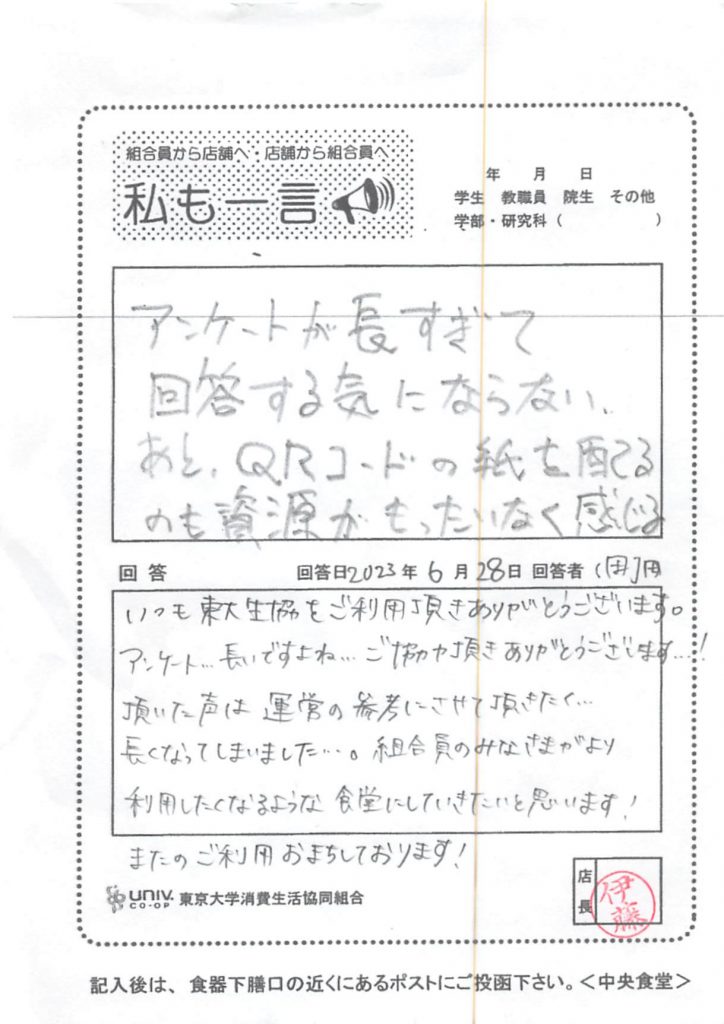 組合員から店舗へ・店舗から組合員へ
私も一言
年 月 日
学生 教職員 院生 その他
学部・研究科（ ）
アンケートが長すぎて
回答する気にならない、
あと、QRコードの紙を配てる
のも資源がもったいなく感じる
回答 回答日2023年6月28日 回答者
いつも東大生協をご利用頂きありがとうございます。
アンケート…長いですよね…ご協力頂きありがとうございます…!
頂いた声は運営の参考にさせて頂きたく…
長くなってしまいました…。組合員のみなさまがより
利用したくなるような食堂にしていきたいと思います!
またのご利用おまちしております!
UNIV. CO-OP 東京大学消費生活協同組合
店長 伊藤
記入後は、食器下膳口の近くにあるポストにご投函下さい。＜中央食堂＞